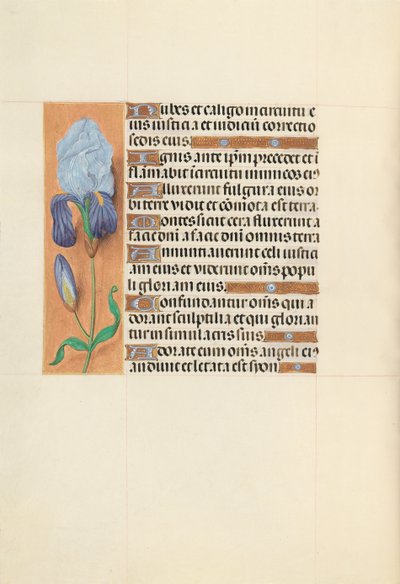 Nubes et caligo in circuitu e
ius iusticia et iudiciũ correctio
sedis eius.
Ignis ante ip̃m precedet et i
flam̃abit in circuitu inimicos ei9
Alluxerunt fulgura eius or
bi terre vidit et com̃ota est terra.
Montes sicut cera fluxerunt a
facie dñi a facie dñi omnis terra
Annuntiauerunt celi iustici
am eius et viderunt om̃s popu
li gloriam eius.
Confundantur om̃s qui a
dorant sculptilia et qui glorian
tur in simulacris suis
Adorate eum om̃s angeli ei9
audiuit et letata est syon